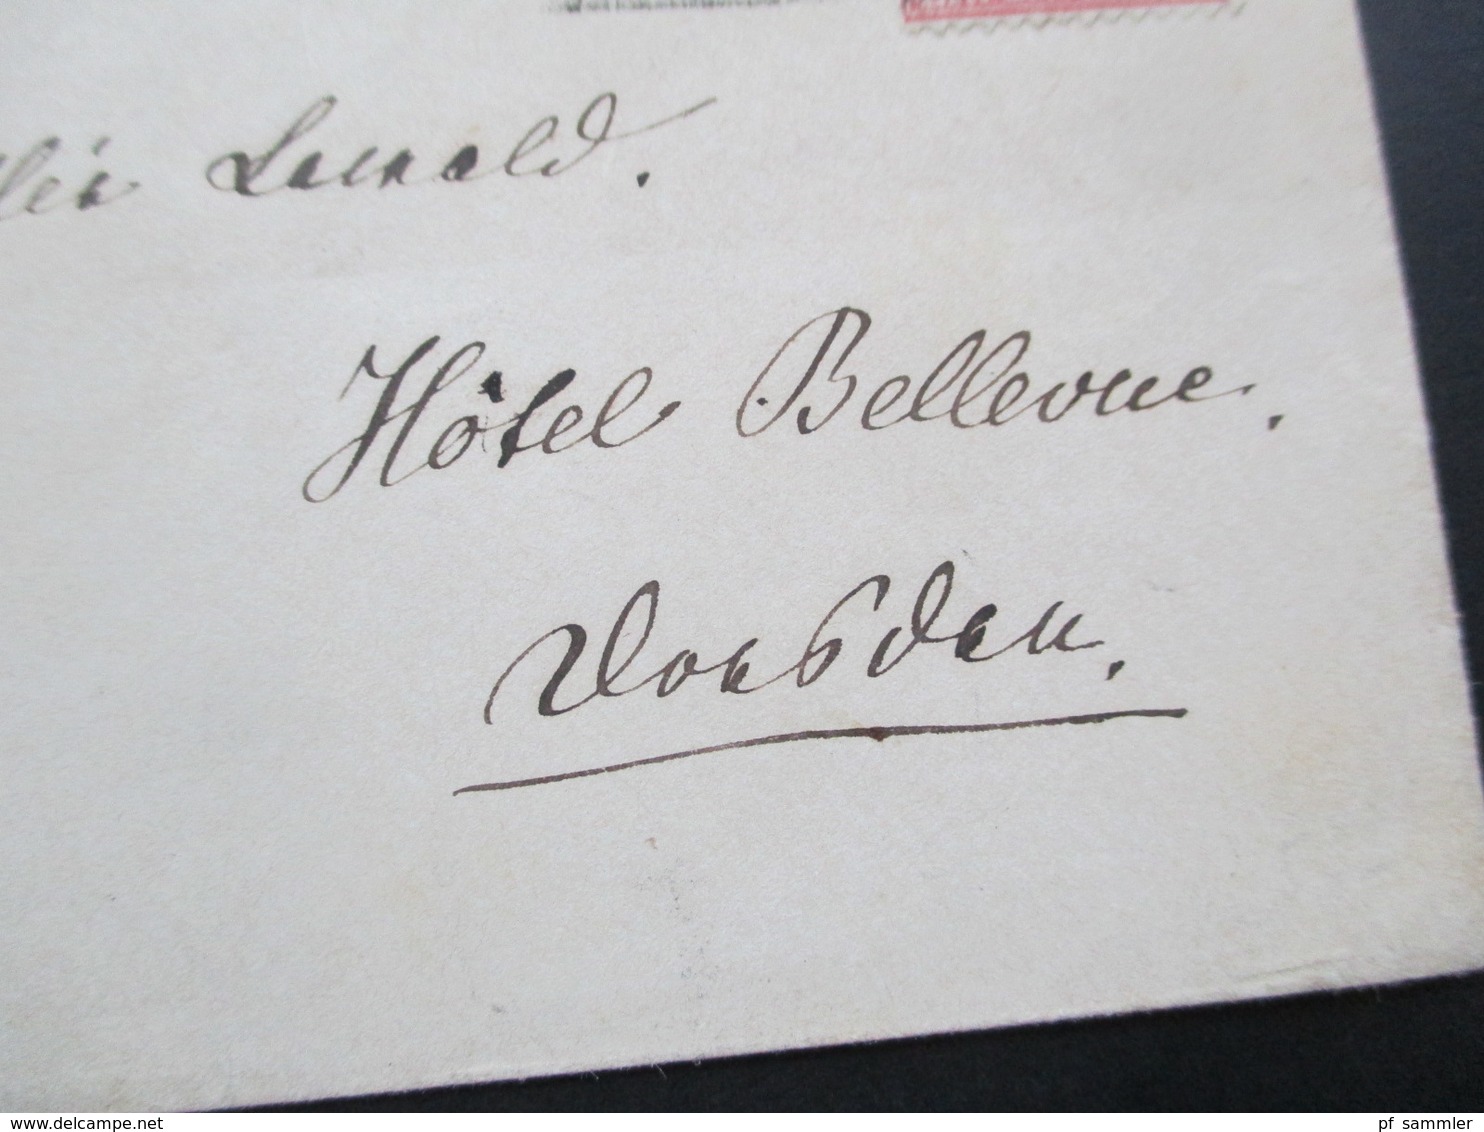 Lewald.
Hôtel Bellevue.
Dresden.
delcampe.net
pf_sammler